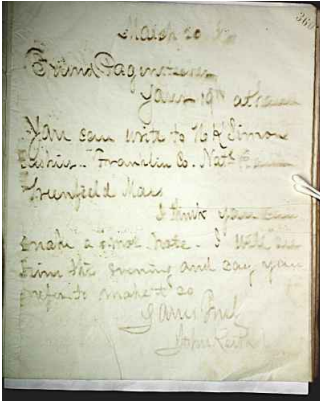 March 20
Friend Pagenstecher
Yours 19th at hand
You can write to H K Simons
Cashier Franklin Co. Natl Bank
Greenfield Mass
I think you can
make a note. I will see
him this evening and say you
prefer to make it so
Yours Truly
John Keith